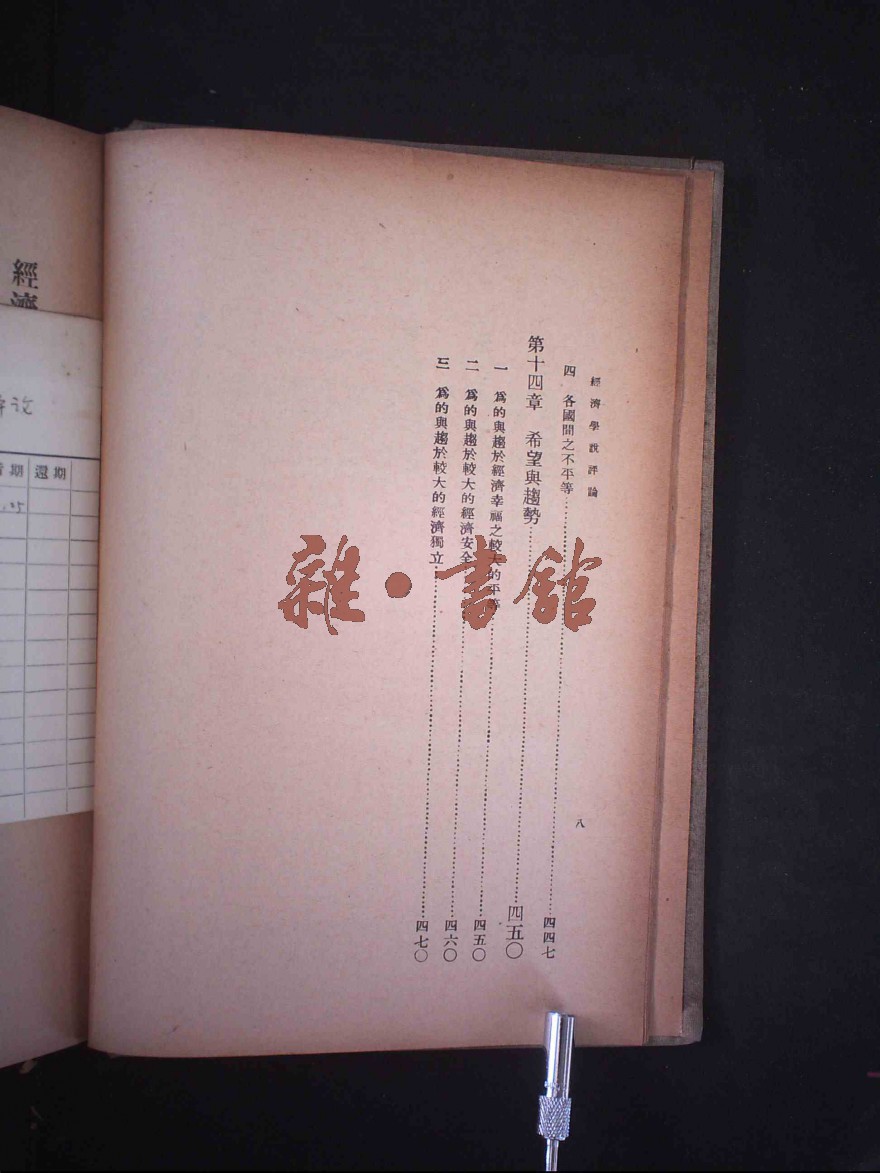 經濟學說評論
八
四 各國間之不平等……四四七
第十四章 希望與趨勢……四五〇
一 爲的與趨於經濟幸福之較大的平等……四五〇
二 爲的與趨於較大的經濟安全……四六〇
三 爲的與趨於較大的經濟獨立……四七〇
雜·書館
經濟
期 還期